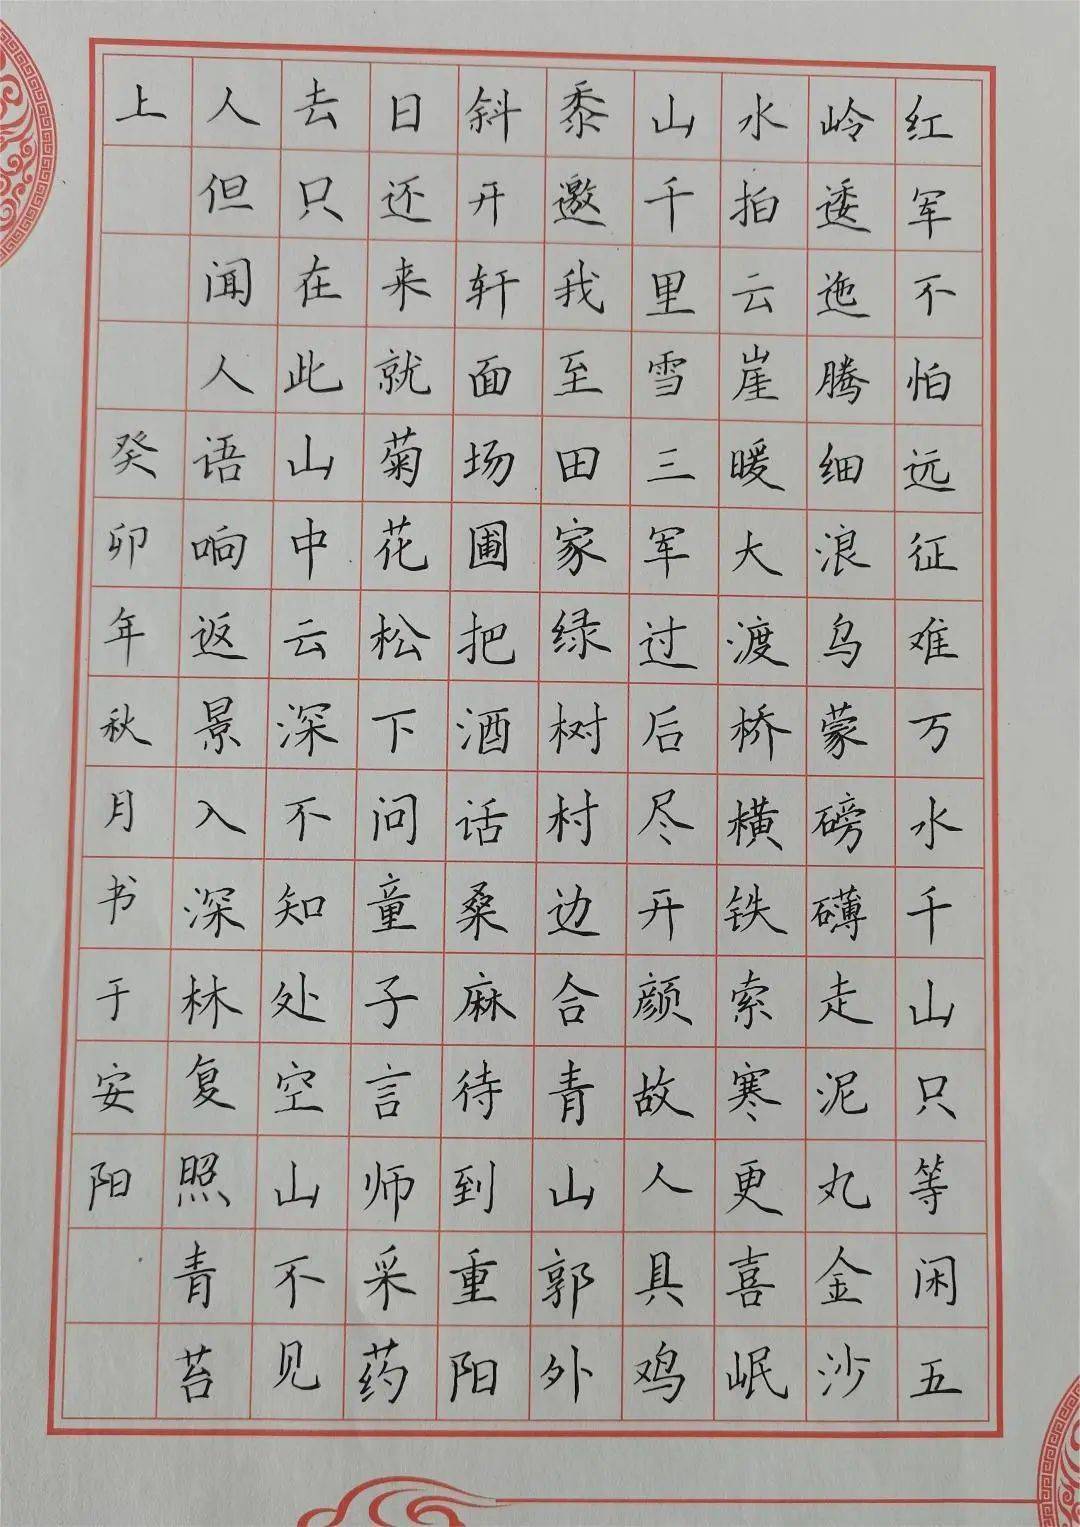 红军不怕远征难万水千山只等闲五
岭逶迤腾细浪乌蒙磅礴走泥丸金沙
水拍云崖暖大渡桥横铁索寒更喜岷
山千里雪三军过后尽开颜故人具鸡
黍邀我至田家绿树村边合青山郭外
斜开轩面场圃把酒话桑麻待到重阳
日还来就菊花松下问童子言师采药
去只在此山中云深不知处空山不见
人但闻人语响返景入深林复照青苔
上 癸卯年秋月书于安阳